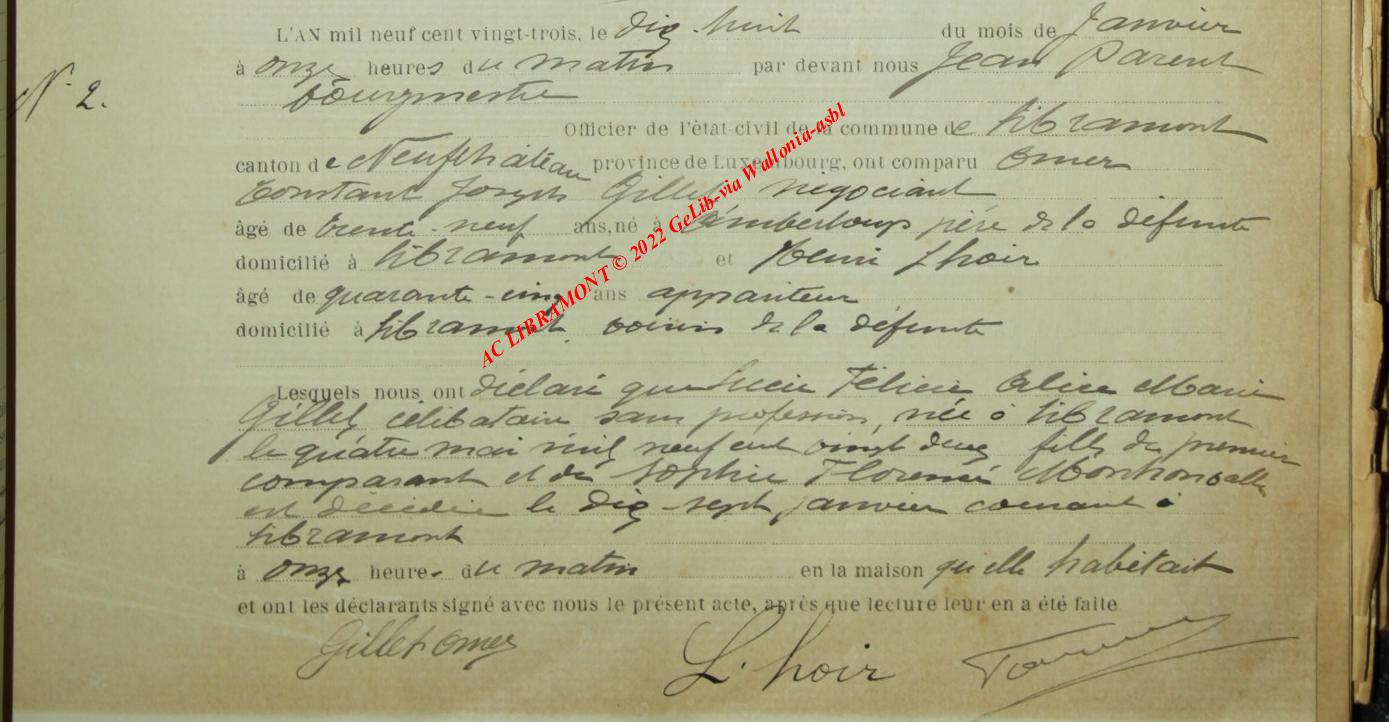 L'AN mil neuf cent vingt-trois, le dix-huit du mois de Janvier
à onze heures du matin par devant nous Jean Parent
N° 2.
bourgmestre
Officier de l'état-civil de la commune de Libramont
canton de Neufchâteau province de Luxembourg, ont comparu Omer
Constant Joseph Gillet négociant
âgé de trente-neuf ans, né à Amberloup père de la défunte
domicilié à Libramont et Henri Lhoir
âgé de quarante-cinq ans appariteur
domicilié à Libramont, voisin de la défunte
AC LIBRAMONT © 2022 GeLib-via Wallonia-asbl
Lesquels nous ont déclaré que Lucie Félicie Alice Marie
Gillet célibataire sans profession, née à Libramont
le quatre mai mil neuf cent vingt deux fille du premier
comparant et de Sophie Florence
est décédée le dix-sept janvier courant à
Libramont
à onze heures du matin en la maison qu'elle habitait
et ont les déclarants signé avec nous le présent acte, après que lecture leur en a été faite
Gillet Omer L'hoir